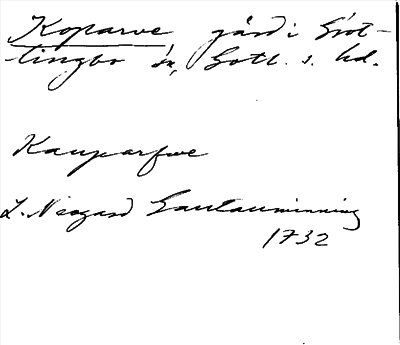 Koparve gård i Gröt-
-lingbo sn, Gotl. s. hd.
Kauparfwe
L. Neogard Gautauminning
1732